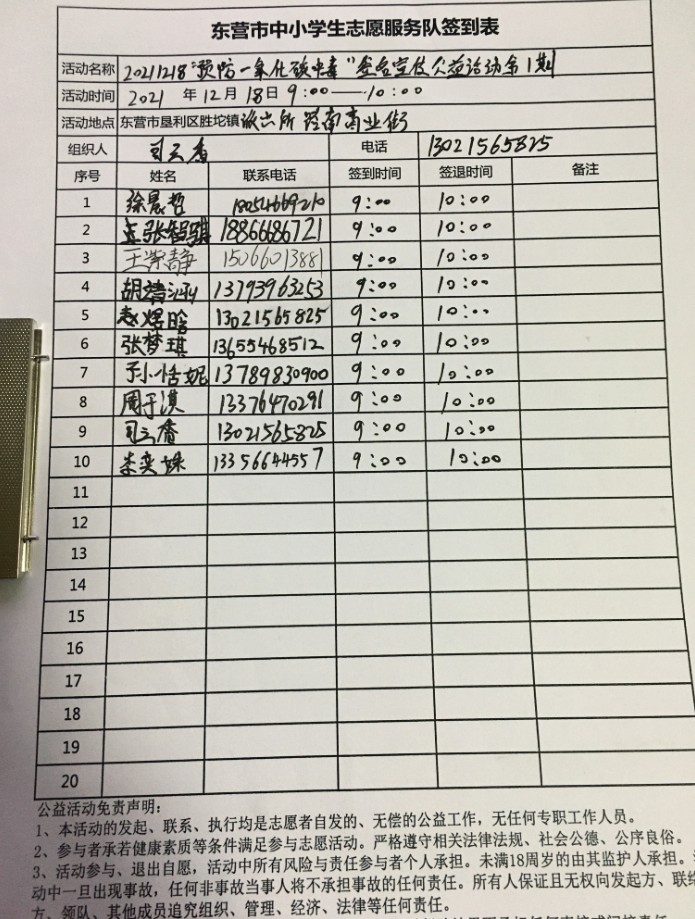 东营市中小学生志愿服务队签到表
活动名称 20211218"预防一氧化碳中毒"签名宣传公益活动第1期
活动时间 2021 年 12月 18日 9:00——10:00
活动地点 东营市垦利区胜坨镇派出所 路南商业街
组织人 司云香 电话 13021565825
序号 姓名 联系电话 签到时间 签退时间 备注
1 徐晨哲 18054669210 9:00 10:00
2 张智骐 18866686721 9:00 10:00
3 王紫静 15066013881 9:00 10:00
4 胡靖涵 13793963253 9:00 10:00
5 赵煜晗 13021565825 9:00 10:00
6 张梦琪 13655468512 9:00 10:00
7 孙恬妮 13789830900 9:00 10:00
8 周于淇 13376470291 9:00 10:00
9 司云香 13021565825 9:00 10:00
10 李奕姝 13356644557 9:00 10:00
11
12
13
14
15
16
17
18
19
20
公益活动免责声明：
1、本活动的发起、联系、执行均是志愿者自发的、无偿的公益工作，无任何专职工作人员。
2、参与者承若健康素质等条件满足参与志愿活动。严格遵守相关法律法规、社会公德、公序良俗。
3、活动参与、退出自愿，活动中所有风险与责任参与者个人承担。未满18周岁的由其监护人承担。
动中一旦出现事故，任何非事故当事人将不承担事故的任何责任。所有人保证且无权向发起方、联络
方、领队、其他成员追究组织、管理、经济、法律等任何责任。